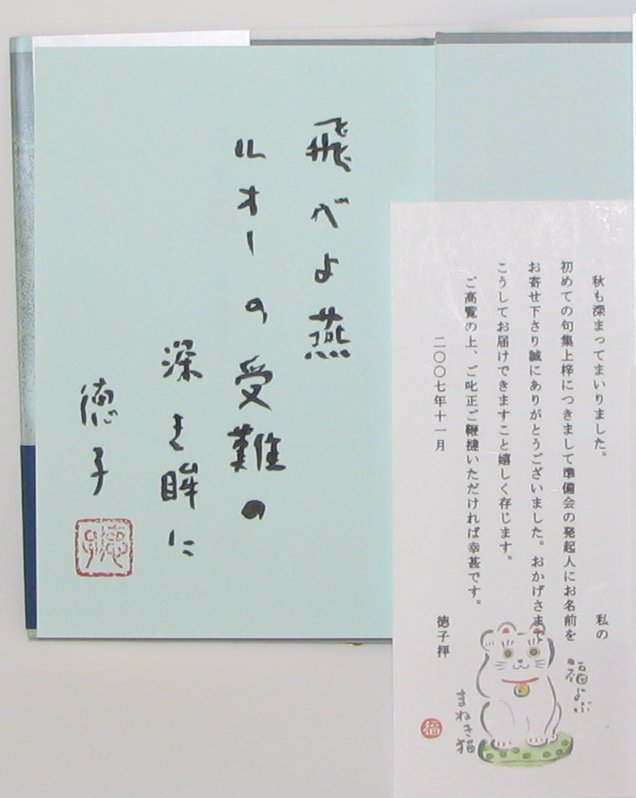 飛べよ燕
ルオーの受難の
深き眸に
徳子
秋も深まってまいりました。 私の
初めての句集上梓につきまして準備会の発起人にお名前を
お寄せ下さり誠にありがとうございました。おかげさまで
こうしてお届けできますこと嬉しく存じます。
ご高覧の上、ご叱正ご鞭撻いただければ幸甚です。
二〇〇七年十一月
徳子拝
福よぶ
まねき猫
福